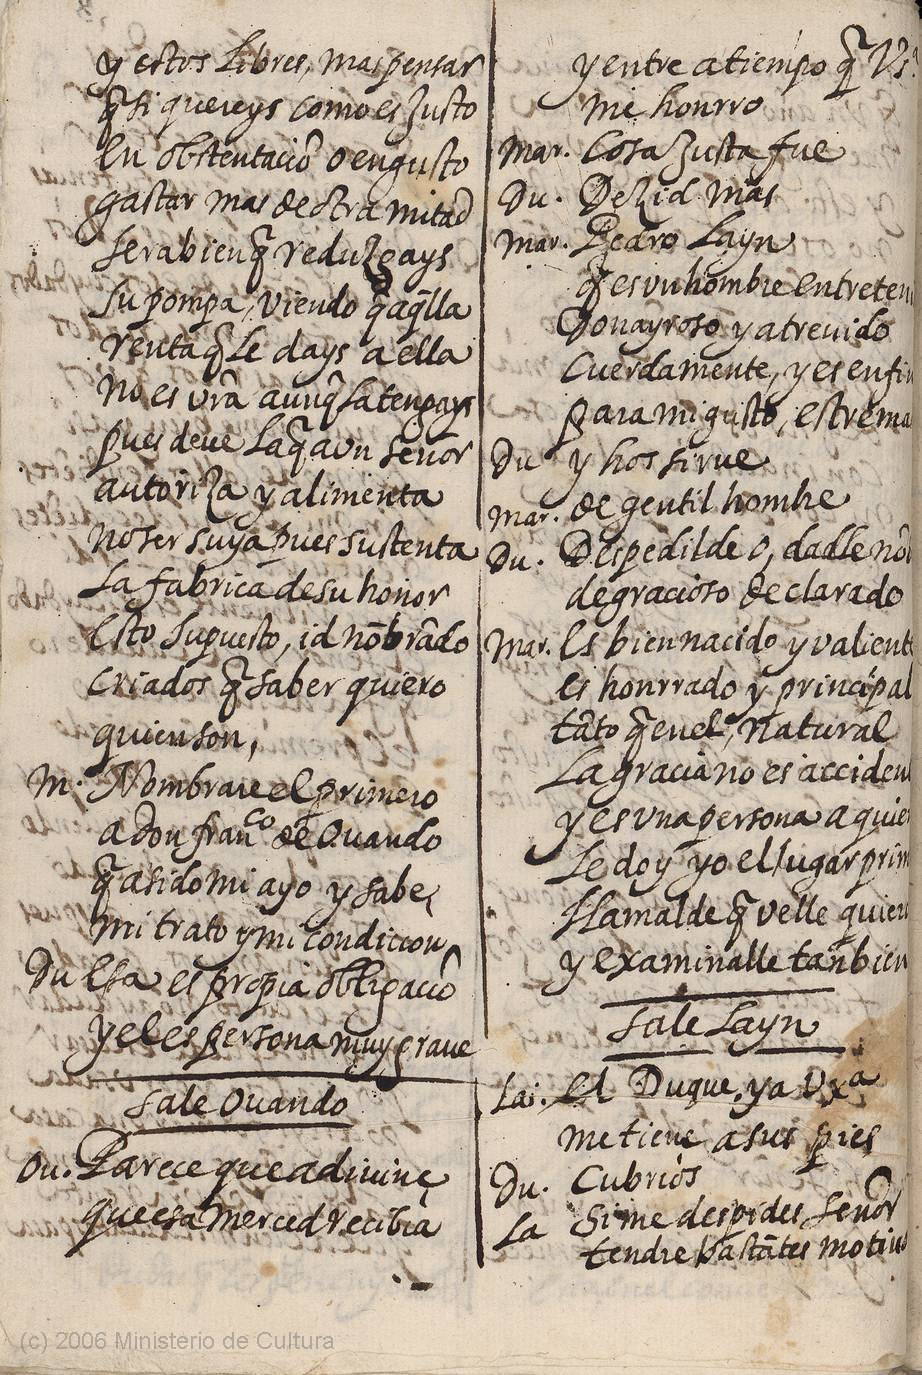 y estos libres, mas pensar
q̃ si quereys como es Justo
en obstentaciõ o en gusto
gastar mas de otra mitad
sera bien q̃ reduzgays
su pompa, viendo q̃ aq̃lla
renta q̃ le days a ella
no es vr̃a aunq̃ la tengays
pues deve la q̃ a vn señor
autoriza y alimenta
no ser suya pues sustenta
la fabrica de su honor
esto supuesto, id nõbrãdo
criados q̃ saber quiero
quien son,
M. Nombrare el primero
a don franco de Ouando
q̃ a sido mi ayo y sabe,
mi trato y mi condicion
Du Esa es propia obligaciõ
y el es persona muy graue
sale Ouando
Ou. Parece que adiuine
que esa merced recibia
y entre a tiempo q̃ Vs.
me honrro
Mar. Cosa Justa fue
Du. Dezid mas
Mar. Pedro Layn
q̃ es vn hombre entreten
Donayroso, y atrevido
Cuerdamente, y es enfin
para mi gusto, estrema
Du y hos sirue
Mar. de gentil hombre
Du. Despedilde o, dadle nõ
de gracioso declarado
Mar. Es bien nacido y valient
es honrrado y principal
tãto q̃ en el, natural
La gracia no es acciden
y es vna persona a quie
Le doy yo el lugar prim
Llamalde q̃ velle quier
y examinalle tanbien
sale Layn
Lai. El Duque, ya Vxa
me tiene a sus pies
Du. Cubrios
La Si me despides señor
tendre bastãtes motiu
(c) 2006 Ministerio de Cultura